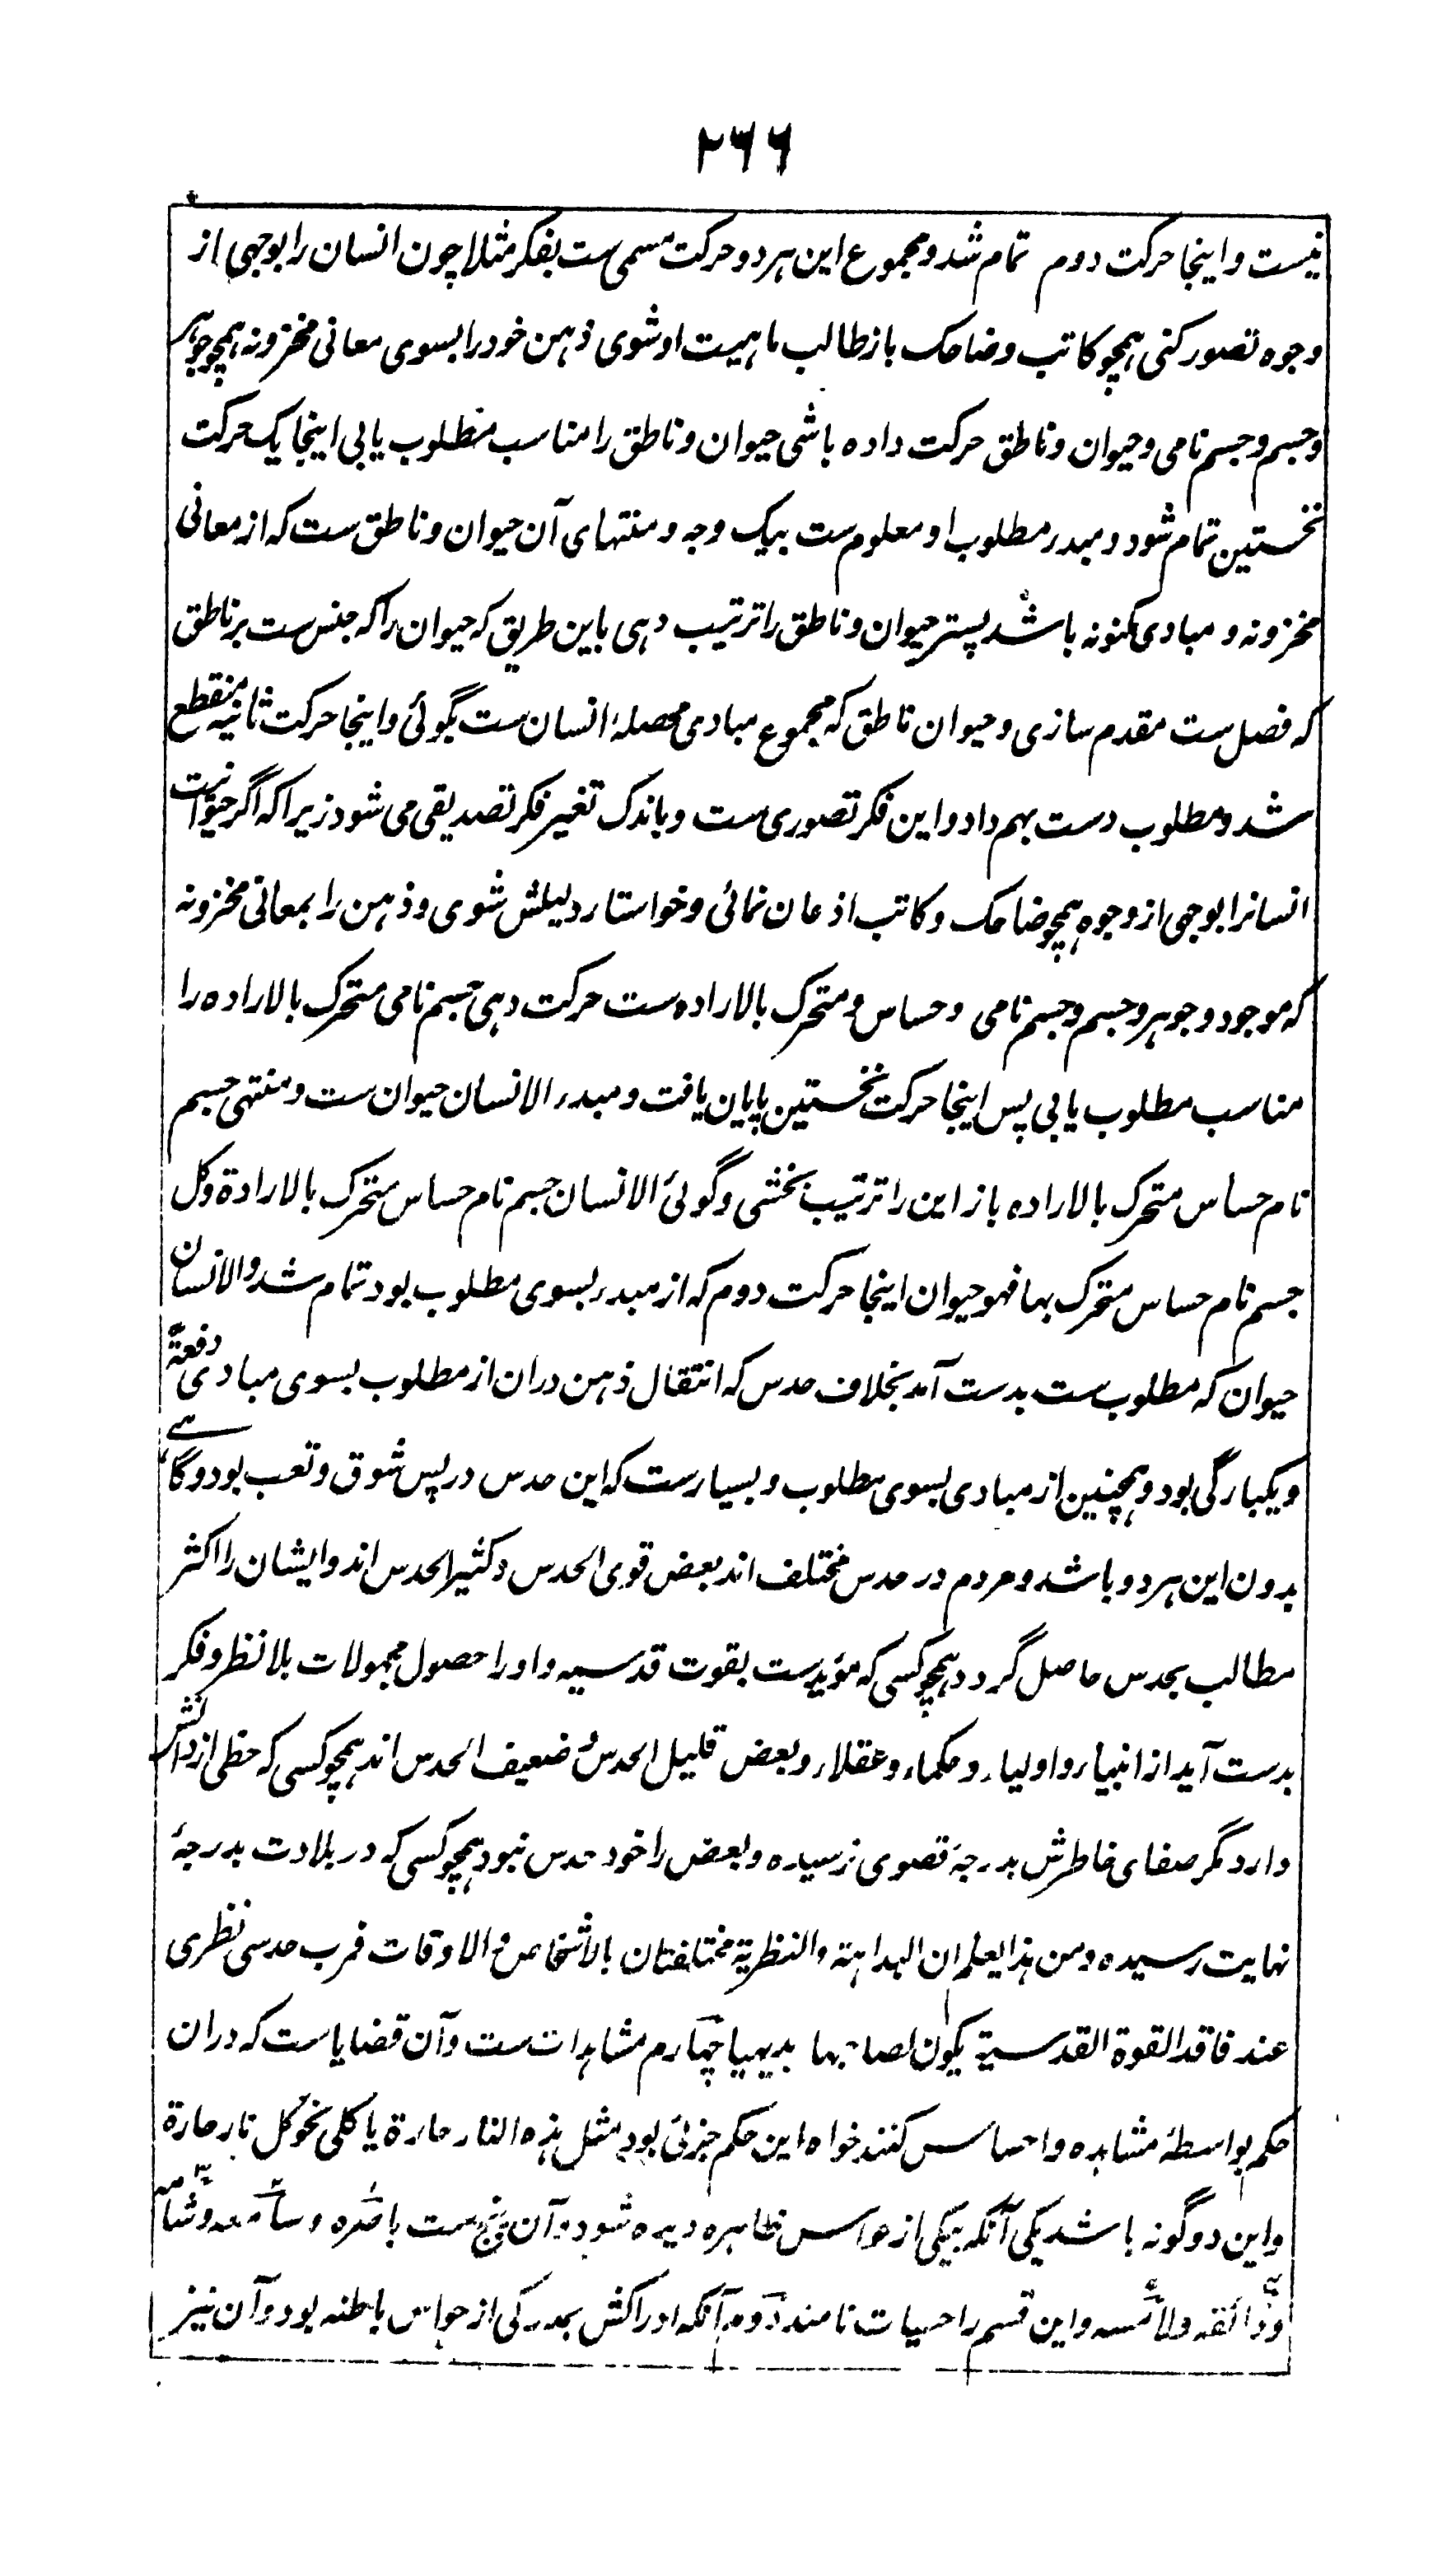 ۲۶۶
نیست و اینجا حرکت دوم تمام شد و مجموع این هر دو حرکت مسمی ست بفکر مثلا چون انسان را بوجهی از
وجوه تصور کنی همچو کاتب و ضاحک باز طالب ماهیت او شوی ذهن خود را بسوی معانی مخزونه همچو جوهر
و جسم و جسم نامی و حیوان و ناطق حرکت داده باشی حیوان و ناطق را مناسب مطلوب یابی اینجا یک حرکت
نخستین تمام شود و مبدر مطلوب او معلوم ست بیک وجه و منتهای آن حیوان و ناطق ست که از معانی
مخزونه و مبادی مکنونه باشد پستر حیوان و ناطق را ترتیب دهی باین طریق که حیوان را که جنس ست بر ناطق
که فصل ست مقدم سازی و حیوان ناطق که مجموع مبادی محصلهٔ انسان ست بگوئی و اینجا حرکت ثانیه منقطع
شد و مطلوب دست بهم داد و این فکر تصوری ست و باندک تغیر فکر تصدیقی می شود زیرا که اگر حیوانیت
انسانرا بوجهی از وجوه همچو ضاحک و کاتب اذعان نمائی و خواستار دلیلش شوی و ذهن را بمعانی مخزونه
که موجود و جوهر و جسم و جسم نامی و حساس و متحرک بالاراده ست حرکت دهی جسم نامی متحرک بالاراده را
مناسب مطلوب یابی پس اینجا حرکت نخستین پایان یافت و مبدر الانسان حیوان ست و منتهی جسم
نام حساس متحرک بالاراده باز این را ترتیب بخشی و گوئی الانسان جسم نام حساس متحرک بالارادة و کل
جسم نام حساس متحرک بها فهو حیوان اینجا حرکت دوم که از مبدر بسوی مطلوب بود تمام شد و الانسان
حیوان که مطلوب ست بدست آمد بخلاف حدس که انتقال ذهن دران از مطلوب بسوی مبادی دفعةً
و یکبارگی بود و همچنین از مبادی بسوی مطلوب و بسیارست که این حدس در پس شوق و تعب بود و گاهے
بدون این هر دو باشد و مردم در حدس مختلف اند بعض قوی الحدس و کثیر الحدس اند و ایشان را اکثر
مطالب بحدس حاصل گردد همچو کسی که مؤید ست بقوت قدسیه و او را حصول مجهولات بلا نظر و فکر
بدست آید از انبیاء و اولیاء و حکماء و عقلاء و بعض قلیل الحدس و ضعیف الحدس اند همچو کسی که حظی از دانش
دارد مگر صفای خاطرش بدرجهٔ قصوی نرسیده و بعض را خود حدس نبود همچو کسی که در بلادت بدرجهٔ
نهایت رسیده و من هذا یعلم ان البداهته والنظریة مختلفتان بالاشخاص و الاوقات فرب حدسی نظری
عند فاقد القوة القدسیة یکون لصاحبها بدیهیا چهارم مشاهدات ست و آن قضایاست که دران
حکم بواسطهٔ مشاهده و احساس کنند خواه این حکم جزئی بود مثل هذه النار حارة یا کلی نحو کل نار حارة
و این دو گونه باشد یکی آنکه بیکی از حواس ظاهره دیده شود و آن پنج ست باصره و سامعه و شامه
و ذائقه و لامسه و این قسم را حسیات نامند دوم آنکه ادراکش بمدرکی از حواس باطنه بود و آن نیز